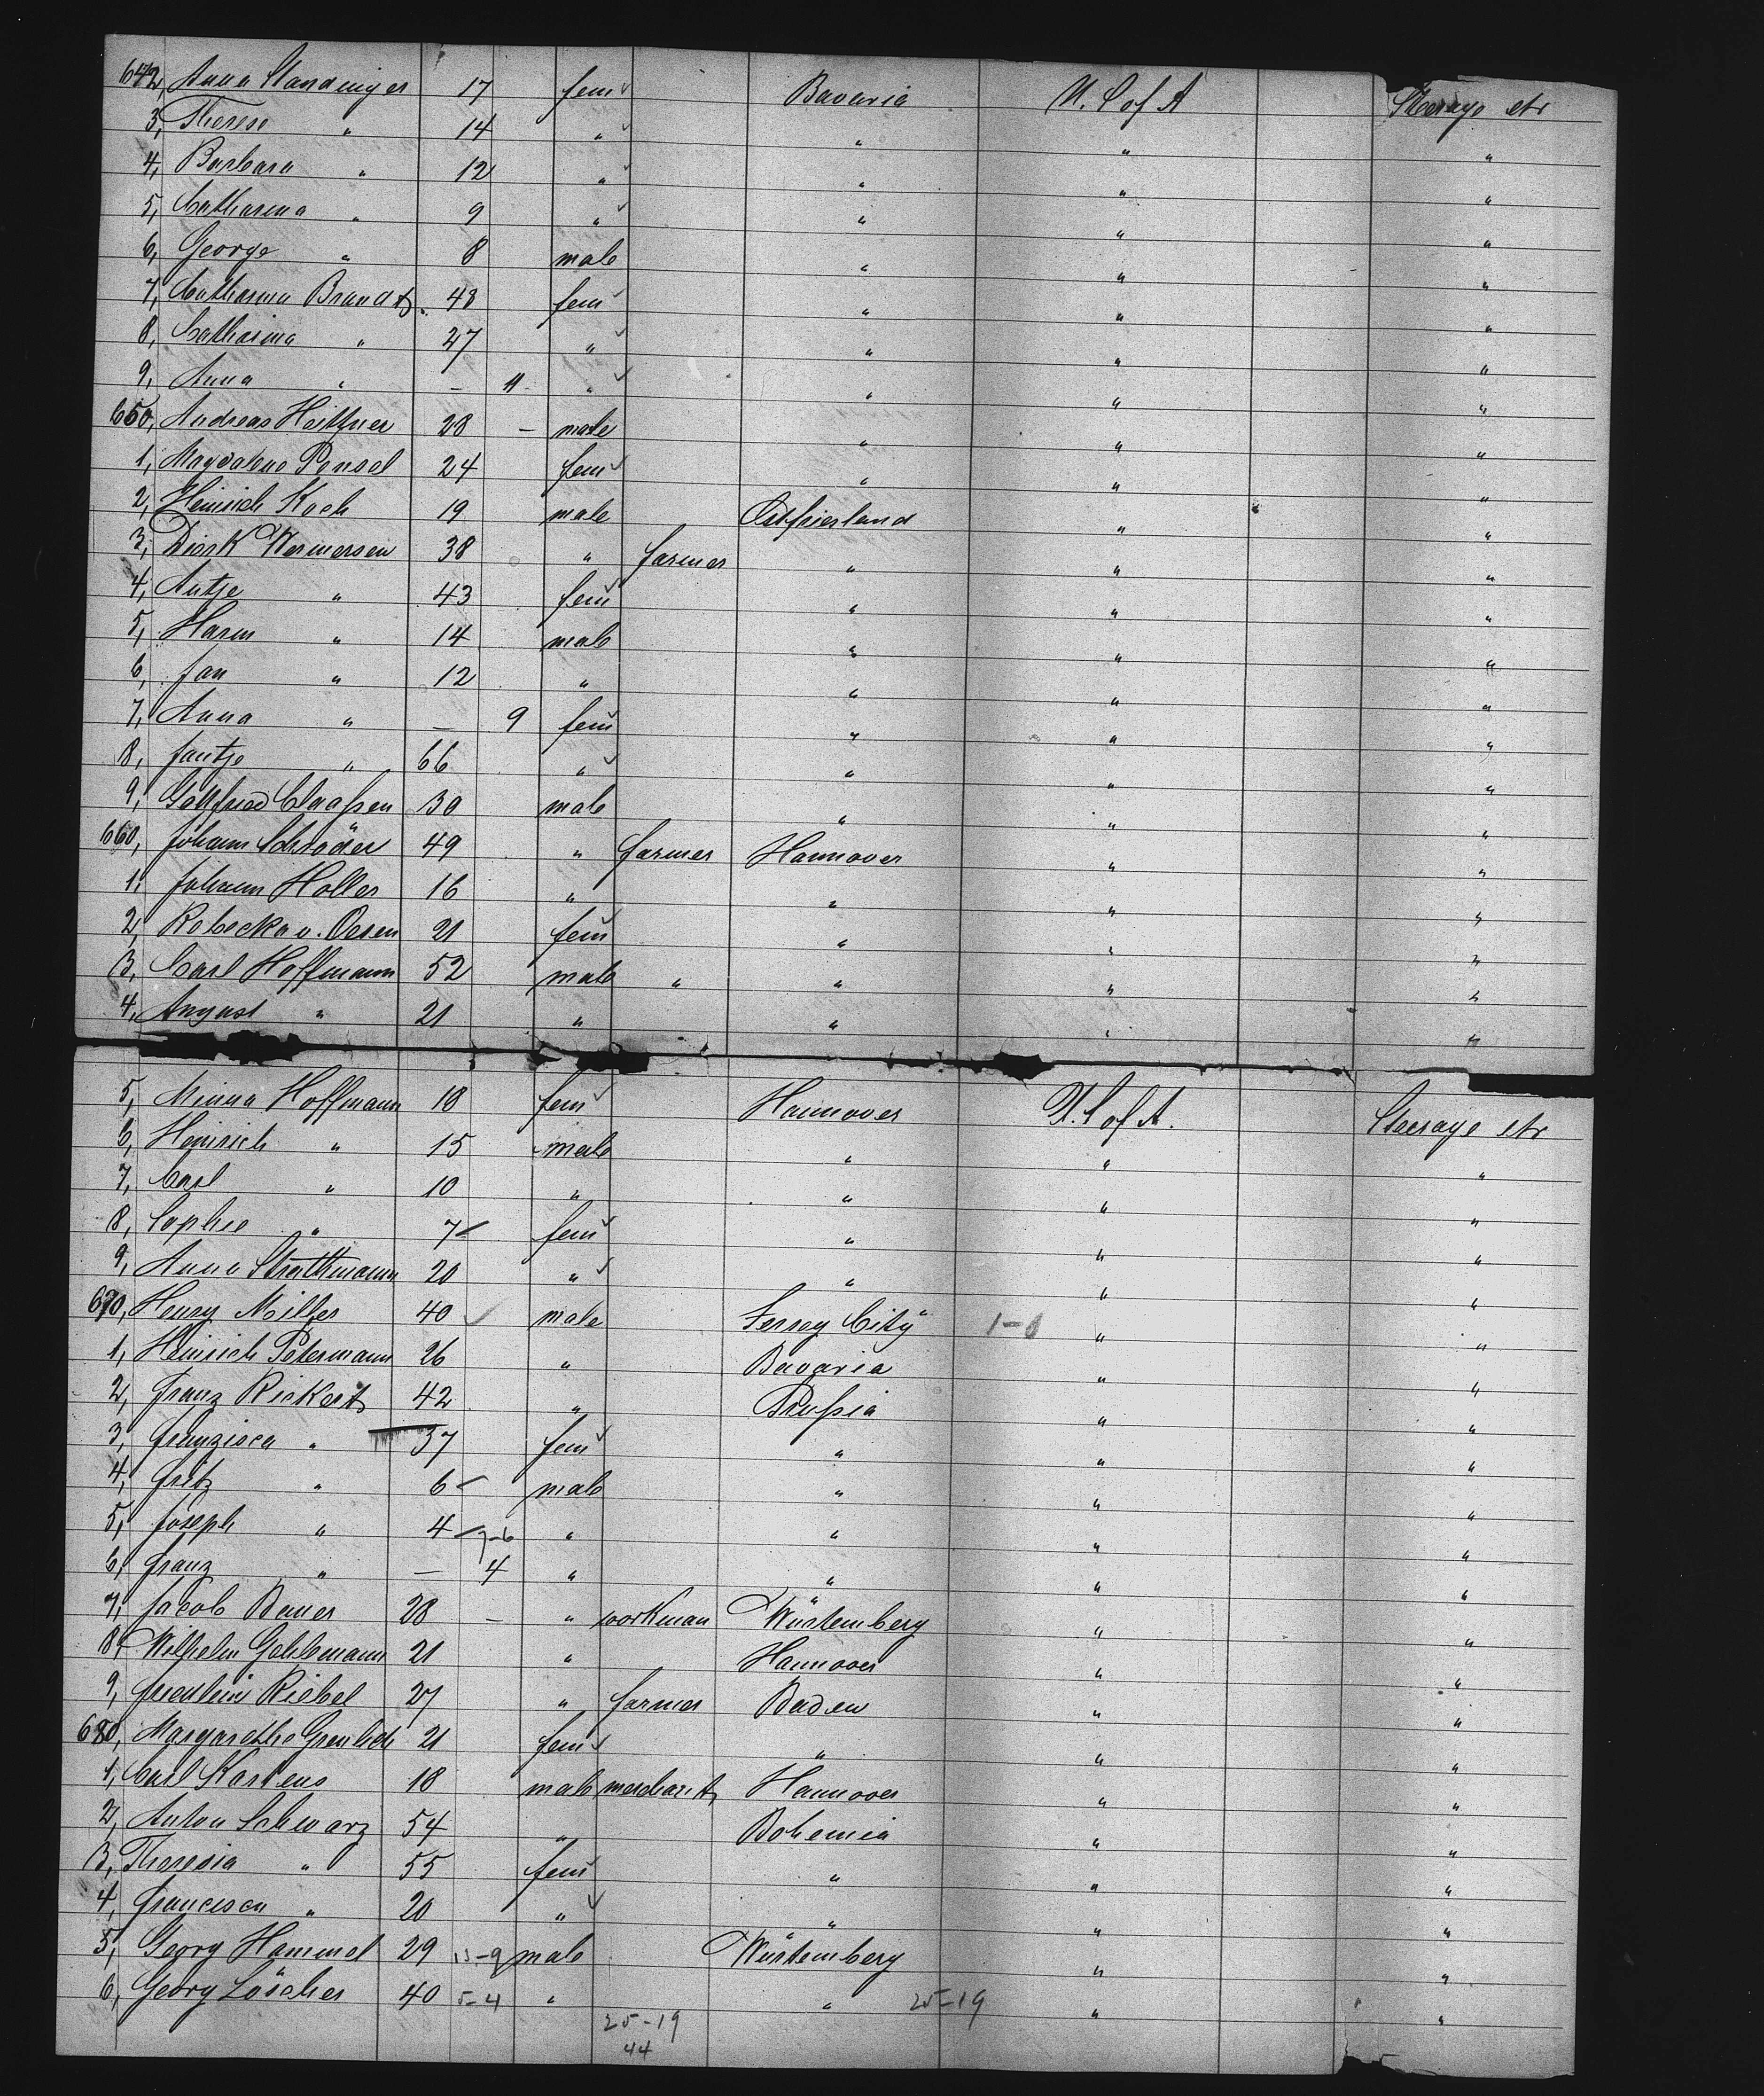 642, Anna Standinger 17 fem ✓ Bavaria U. S of A Steerage etr
3, Therese " 14 " ✓ " " "
4, Barbara " 12 " ✓ " " "
5, Catharina " 9 " ✓ " " "
6, George " 8 male " " "
7, Catharina Brandt 48 fem ✓ " " "
8, Catharina " 27 " ✓ " " "
9, Anna " — 11 " ✓ " " "
650, Andreas Heittner 28 — male " " "
1, Magdalena Pensel 24 fem ✓ " " "
2, Heinrich Koch 19 male Ostfriesland " "
3, Dirk Wermersen 38 " farmer " " "
4, Antje " 43 fem ✓ " " "
5, Harm " 14 male " " "
6, Jan " 12 " " " "
7, Anna " — 9 fem ✓ " " "
8, Jantje " 66 " ✓ " " "
9, Gottfried Claaßen 30 male " " "
660, Johann Schröder 49 " farmer Hannover " "
1, Johann Holler 16 " " " "
2, Rebecka v. Oesen 21 fem ✓ " " "
3, Carl Hoffmann 52 male " " " "
4, August " 21 " " " "
5, Minna Hoffmann 18 fem ✓ Hannover U. S of A. Steerage etr
6, Heinrich " 15 male " " "
7, Carl " 10 " " " "
8, Sophie " 7 fem ✓ " " "
9, Anna Strathmann 20 " ✓ " " "
670, Henry Miller 40 ✓ male Jersey City 1-0 " "
1, Heinrich Petermann 26 " Bavaria " "
2, Franz Rickert 42 " Prußia " "
3, Franzisca " 37 fem ✓ " " "
4, Fritz " 6 male " " "
5, Joseph " 4 7-6 " " " "
6, Franz " — 4 " " " "
7, Jacob Bauer 28 — " workman Würtemberg " "
8, Wilhelm Gehlemann 21 " Hannover " "
9, Riebel 27 " farmer Baden " "
680, Margarethe Greulich 21 fem ✓ " " "
1, Carl Karlens 18 male merchant Hannover " "
2, Anton Schwarz 54 " Bohemia " "
3, Theresia " 55 fem ✓ " " "
4, Francisca " 20 " ✓ " " "
5, Georg Hammel 29 13-9 male Würtemberg " "
6, Georg Löscher 40 5-4 " " 25-19 " "
25-19
44